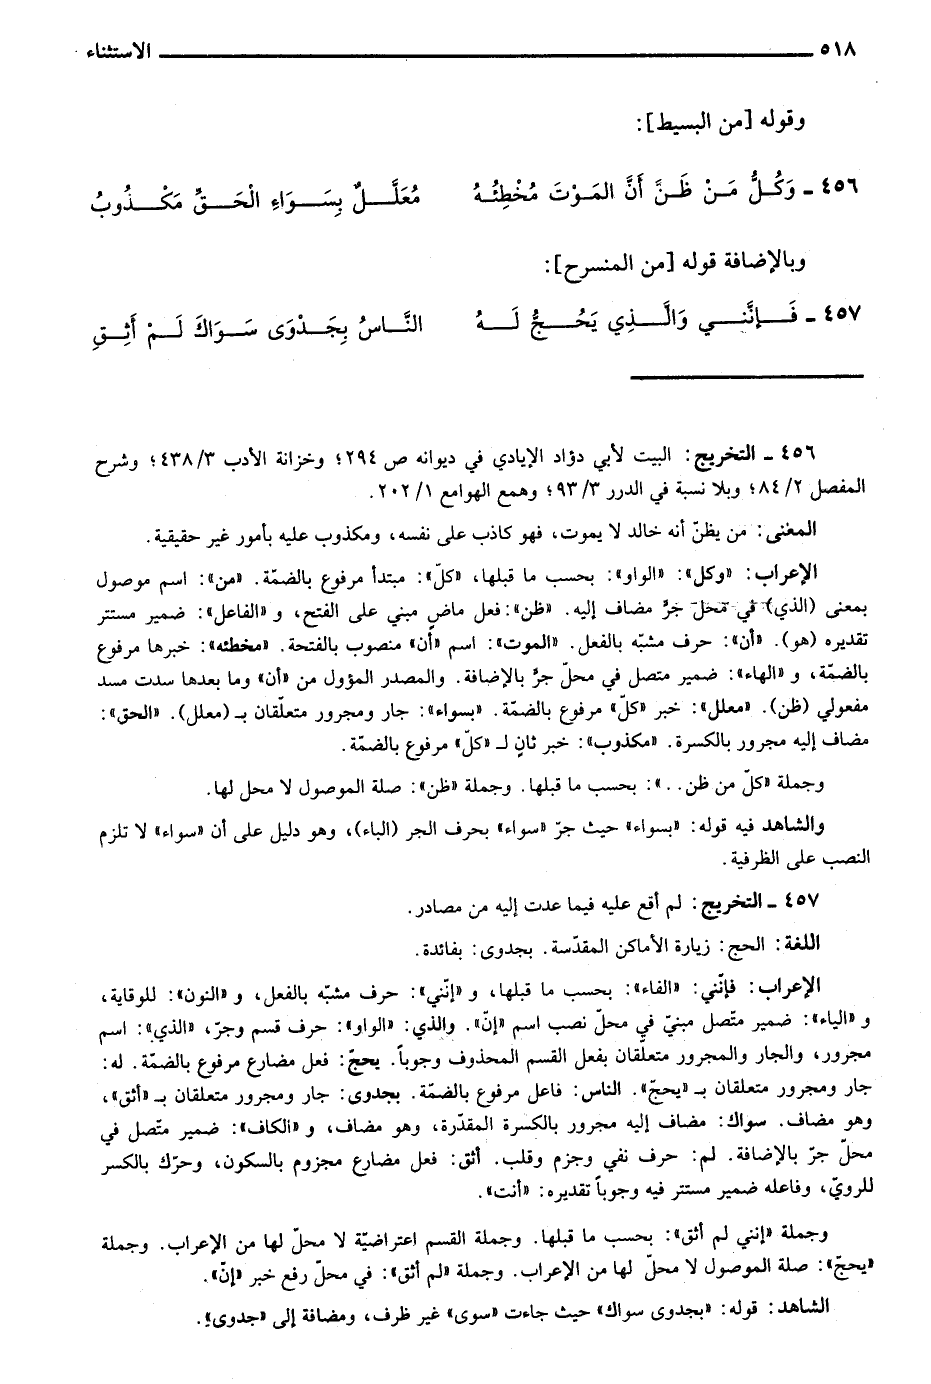 ٥١٨ الاستثناء
وقوله [من البسيط]:
٤٥٦ ـ وَكُلُّ مَنْ ظَنَّ أَنَّ المَوْتَ مُخْطِئُهُ مُعَلَّلٌ بِسَوَاءِ الْحَقِّ مَكْذُوبُ
وبالإضافة قوله [من المنسرح]:
٤٥٧ ـ فَإِنَّنِي وَالَّذِي يَحُجُّ لَهُ النَّاسُ بِجَدْوَى سَوَاكَ لَمْ أَثِقِ
٤٥٦ ـ التخريج: البيت لأبي دؤاد الإيادي في ديوانه ص ٢٩٤؛ وخزانة الأدب ٣/ ٤٣٨؛ وشرح
المفصل ٢/ ٨٤؛ وبلا نسبة في الدرر ٣/ ٩٣؛ وهمع الهوامع ١/ ٢٠٢.
المعنى: من يظنّ أنه خالد لا يموت، فهو كاذب على نفسه، ومكذوب عليه بأمور غير حقيقية.
الإعراب: «وكل»: «الواو»: بحسب ما قبلها، «كلّ»: مبتدأ مرفوع بالضمّة. «من»: اسم موصول
بمعنى (الذي) في محل جرٍّ مضاف إليه. «ظن»: فعل ماضٍ مبني على الفتح، و «الفاعل»: ضمير مستتر
تقديره (هو). «أن»: حرف مشبّه بالفعل. «الموت»: اسم «أن» منصوب بالفتحة. «مخطئه»: خبرها مرفوع
بالضمّة، و «الهاء»: ضمير متصل في محلّ جرٍّ بالإضافة. والمصدر المؤول من «أن» وما بعدها سدت مسد
مفعولي (ظن). «معلل»: خبر «كلّ» مرفوع بالضمّة. «بسواء»: جار ومجرور متعلّقان بـ (معلل). «الحق»:
مضاف إليه مجرور بالكسرة. «مكذوب»: خبر ثانٍ لـ «كلّ» مرفوع بالضمّة.
وجملة «كلّ من ظن..»: بحسب ما قبلها. وجملة «ظن»: صلة الموصول لا محل لها.
والشاهد فيه قوله: «بسواء» حيث جرّ «سواء» بحرف الجر (الباء)، وهو دليل على أن «سواء» لا تلزم
النصب على الظرفية.
٤٥٧ ـ التخريج: لم أقع عليه فيما عدت إليه من مصادر.
اللغة: الحج: زيارة الأماكن المقدّسة. بجدوى: بفائدة.
الإعراب: فإنّني: «الفاء»: بحسب ما قبلها، و «إنّني»: حرف مشبّه بالفعل، و «النون»: للوقاية،
و «الياء»: ضمير متّصل مبنيّ في محلّ نصب اسم «إنّ». والذي: «الواو»: حرف قسم وجرّ، «الذي»: اسم
مجرور، والجار والمجرور متعلّقان بفعل القسم المحذوف وجوباً. يحجّ: فعل مضارع مرفوع بالضمّة. له:
جار ومجرور متعلقان بـ «يحجّ». الناس: فاعل مرفوع بالضمّة. بجدوى: جار ومجرور متعلقان بـ «أثق»،
وهو مضاف. سواك: مضاف إليه مجرور بالكسرة المقدّرة، وهو مضاف، و «الكاف»: ضمير متّصل في
محلّ جرّ بالإضافة. لم: حرف نفي وجزم وقلب. أثق: فعل مضارع مجزوم بالسكون، وحرّك بالكسر
للرويّ، وفاعله ضمير مستتر فيه وجوباً تقديره: «أنت».
وجملة «إنني لم أثق»: بحسب ما قبلها. وجملة القسم اعتراضيّة لا محلّ لها من الإعراب. وجملة
«يحجّ»: صلة الموصول لا محلّ لها من الإعراب. وجملة «لم أثق»: في محلّ رفع خبر «إنّ».
الشاهد: قوله: «بجدوى سواك» حيث جاءت «سوى» غير ظرف، ومضافة إلى «جدوى».